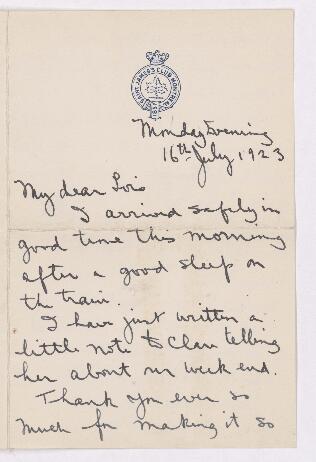 SAINT JAMES'S CLUB MONTREAL
Monday Evening
16th July 1923
My dear Lois
I arrived safely in
good time this morning
after a good sleep on
the train.
I have just written a
little note to Clare telling
her about our week end.
Thank you ever so
much for making it so